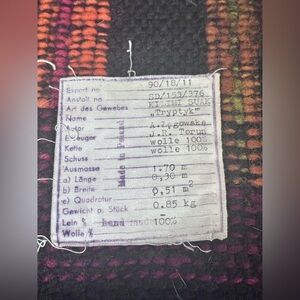 Export no 90/18/11
Anstalt no SD/153/376
Art des Gewebes KILIMI SUAK
Name „Tryptyk"
Autor A.Łęgowska
Erzeuger J.R. Toruń
Kette wolle 100%
Schuss wolle 100%
Ausmasse
a) Länge 1.70 m
b) Breite 0,30 m
c) Quadratur 0,51 m2
Gewicht p. Stück 0.85 kg
Lein %
Wolle % 100%
Made in Poland
Hand made